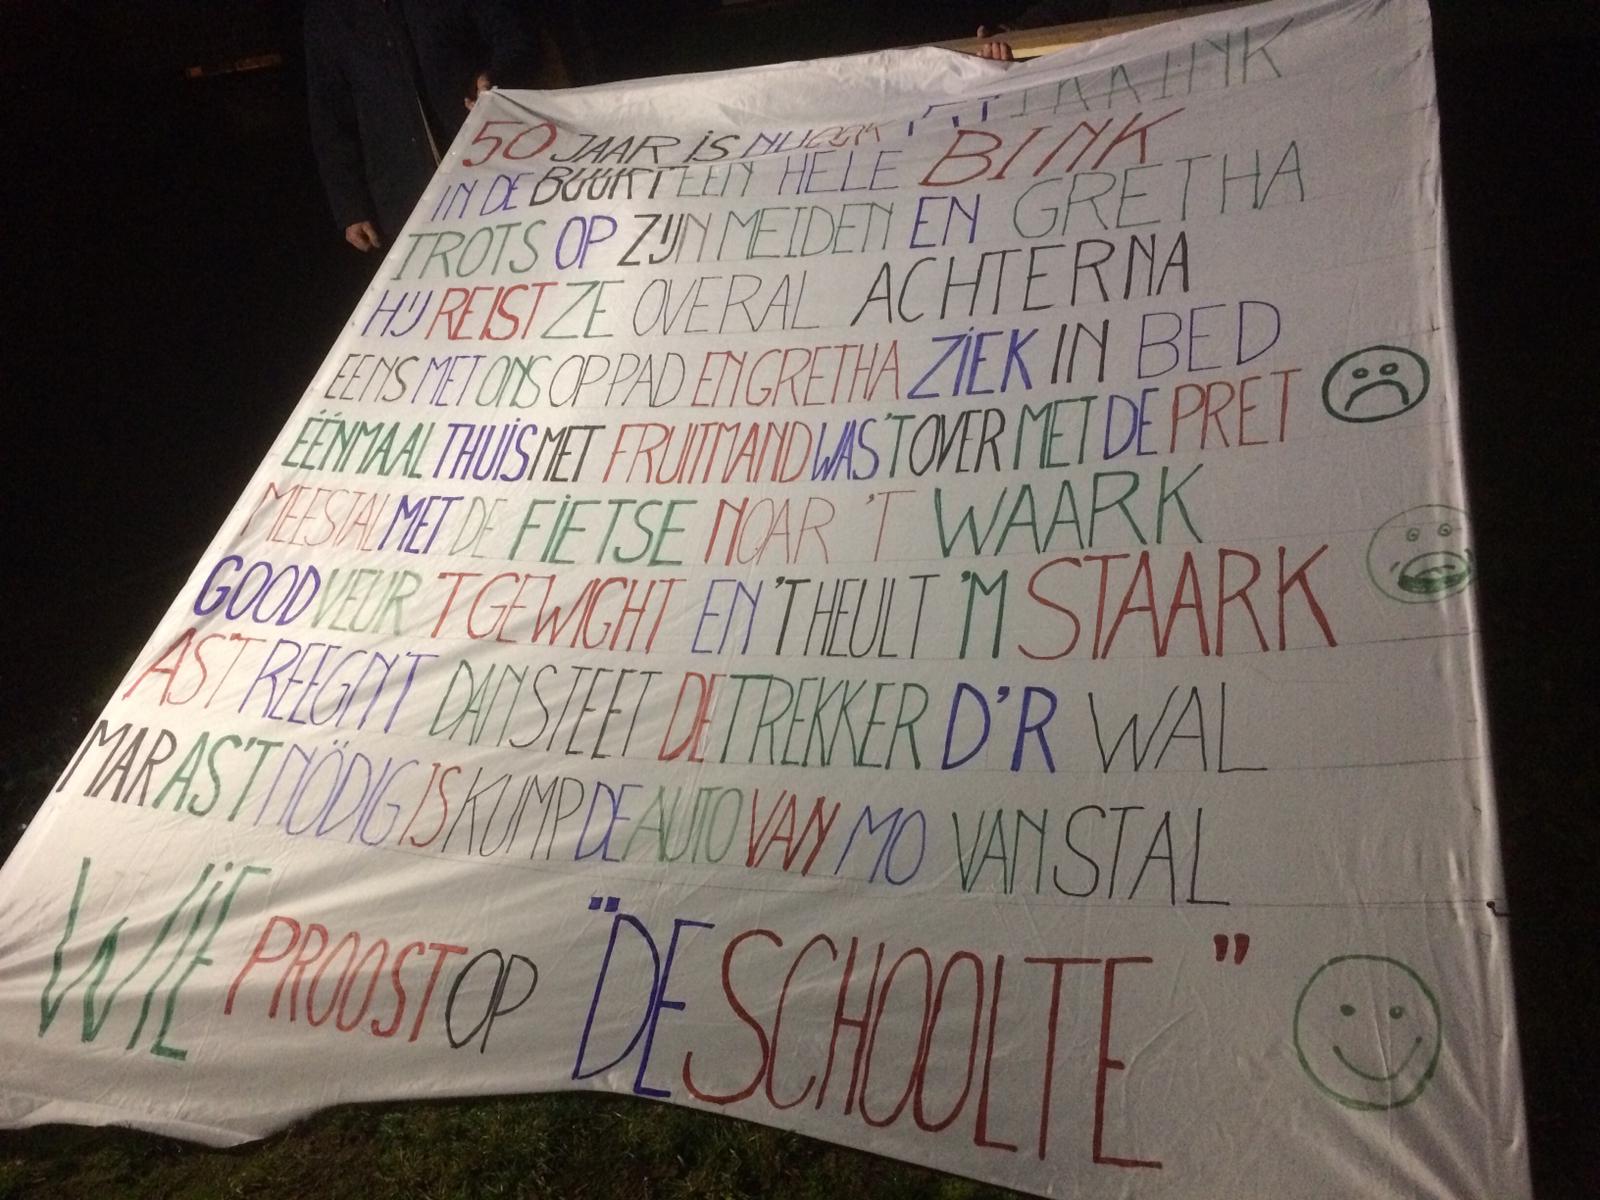 50 JAAR IS NU OOK
IN DE BUURT EEN HELE BINK
TROTS OP ZIJN MEIDEN EN GRETHA
HIJ REIST ZE OVERAL ACHTERNA
EENS MET ONS OP PAD EN GRETHA ZIEK IN BED
ÉÉNMAAL THUIS MET FRUITMAND WAS 'T OVER MET DE PRET
MEESTAL MET DE FIETSE NOAR 'T WAARK
GOOD VEUR 'T GEWICHT EN 'T HEULT 'M STAARK
AS'T REEGNT DAN STEET DE TREKKER D'R WAL
MAR AS'T NÖDIG IS KUMP DE AUTO VAN MO VAN STAL
WIE PROOST OP "DE SCHOOLTE"